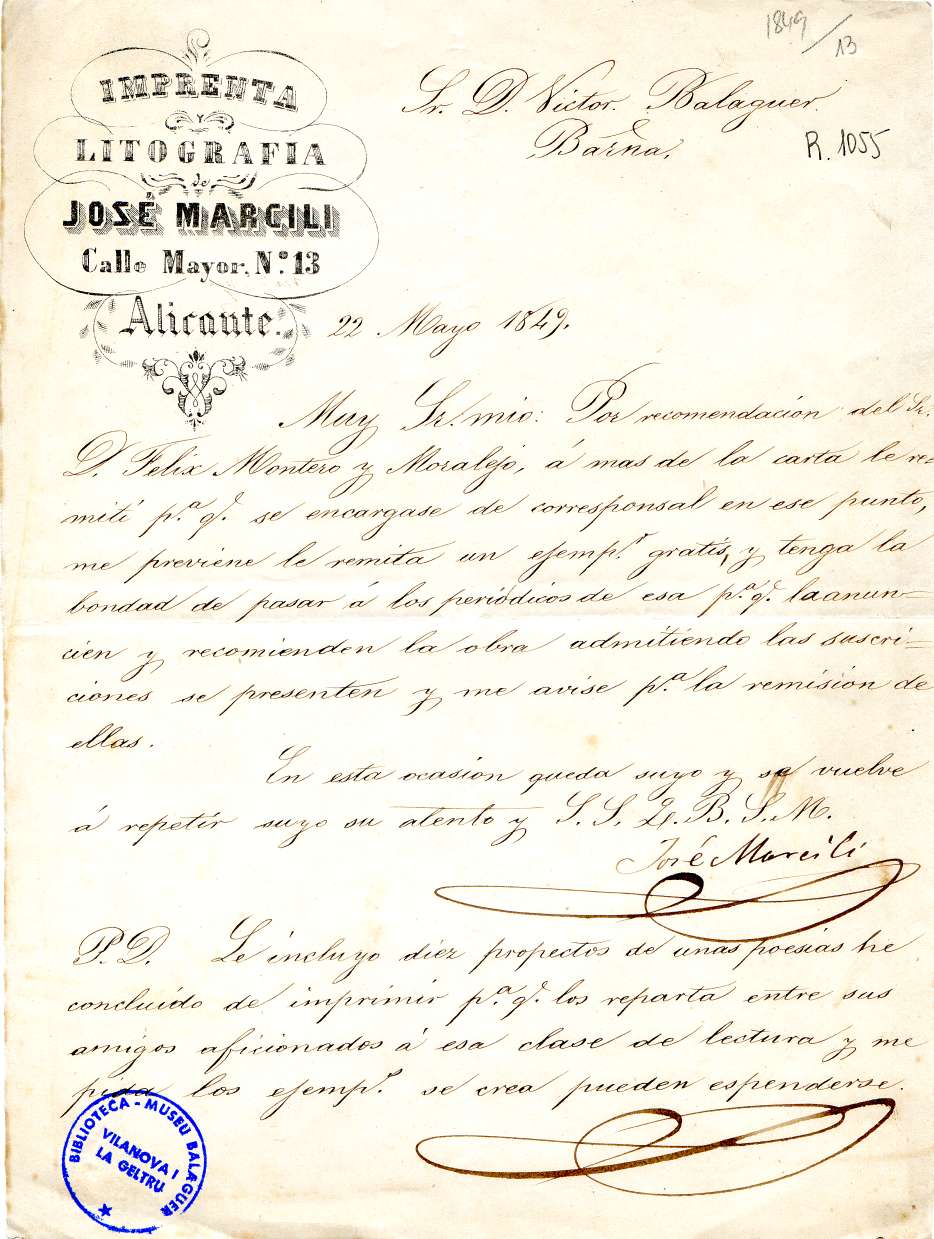 1849/13
IMPRENTA
Y
LITOGRAFIA
de
JOSÉ MARCILI
Calle Mayor, N.º 13
Alicante.
Sr. D. Victor Balaguer.
Barna.
R. 1055
22 Mayo 1849.
Muy Sr. mio: Por recomendación del Sr.
D. Felix Montero y Moralejo, á mas de la carta le re=
miti p.ª q.e se encargase de corresponsal en ese punto,
me previene le remita un ejemp.r gratis, y tenga la
bondad de pasar á los periódicos de esa p.ª q.e la anun=
cien y recomienden la obra admitiendo las suscri=
ciones se presenten y me avise p.ª la remision de
ellas.
En esta ocasion queda suyo y se vuelve
á repetir suyo su atento y S. S. Q. B. S. M.
José Marcili
P. D. Le incluyo diez propectos de unas poesias he
concluido de imprimir p.ª q.e los reparta entre sus
amigos aficionados á esa clase de lectura y me
pida los ejemp.s se crea pueden espenderse.
BIBLIOTECA - MUSEU BALAGUER
VILANOVA I
LA GELTRU